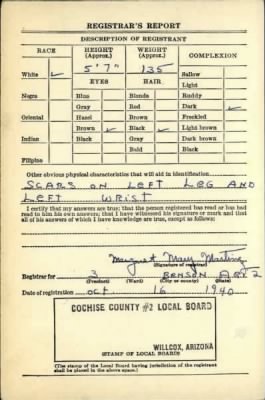 REGISTRAR'S REPORT
DESCRIPTION OF REGISTRANT
RACE HEIGHT (Approx.) WEIGHT (Approx.) COMPLEXION
5' 7" 135
White ✓ EYES HAIR Sallow
Light
Negro Blue Blonde Ruddy
Gray Red Dark ✓
Oriental Hazel Brown Freckled
Brown ✓ Black ✓ Light brown
Indian Black Gray Dark brown
Bald Black
Filipino
Other obvious physical characteristics that will aid in identification
SCARS ON LEFT LEG AND
LEFT WRIST
I certify that my answers are true; that the person registered has read or has had
read to him his own answers; that I have witnessed his signature or mark and that
all of his answers of which I have knowledge are true, except as follows:
Margaret Mary
(Signature of registrar)
Registrar for 3 BENSON ARIZ
(Precinct) (Ward) (City or county) (State)
Date of registration Oct 16 1940
COCHISE COUNTY #2 LOCAL BOARD
WILLCOX, ARIZONA
(STAMP OF LOCAL BOARD)
(The stamp of the Local Board having jurisdiction of the registrant
shall be placed in the above space.)